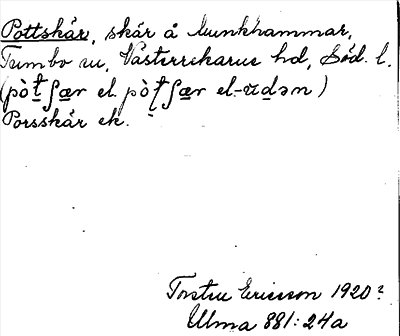 Pottskär, skär å Munkhammar,
Tumbo sn, Västerrekarne hd, Söd. l.
(pòt̠ʃæ̠r el. pòt̠ʃæ̠r el. -ʊd̠ən)
Porsskär ek.
Torsten Ericsson 1920?
Ulma 881:24a